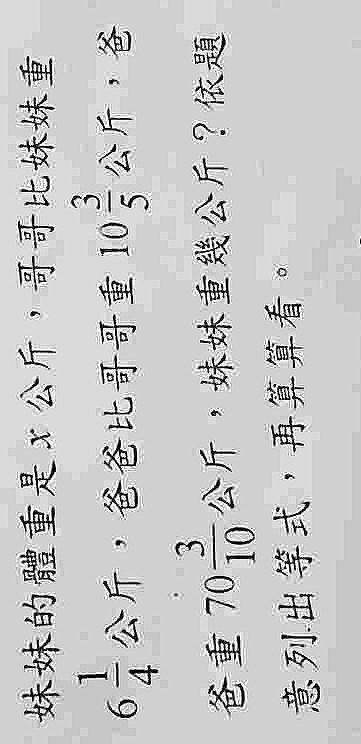 妹妹的體重是x公斤，哥哥比妹妹重
6 1/4 公斤，爸爸比哥哥重 10 3/5 公斤，爸
爸重 70 3/10 公斤，妹妹重幾公斤？依題
意列出等式，再算算看。